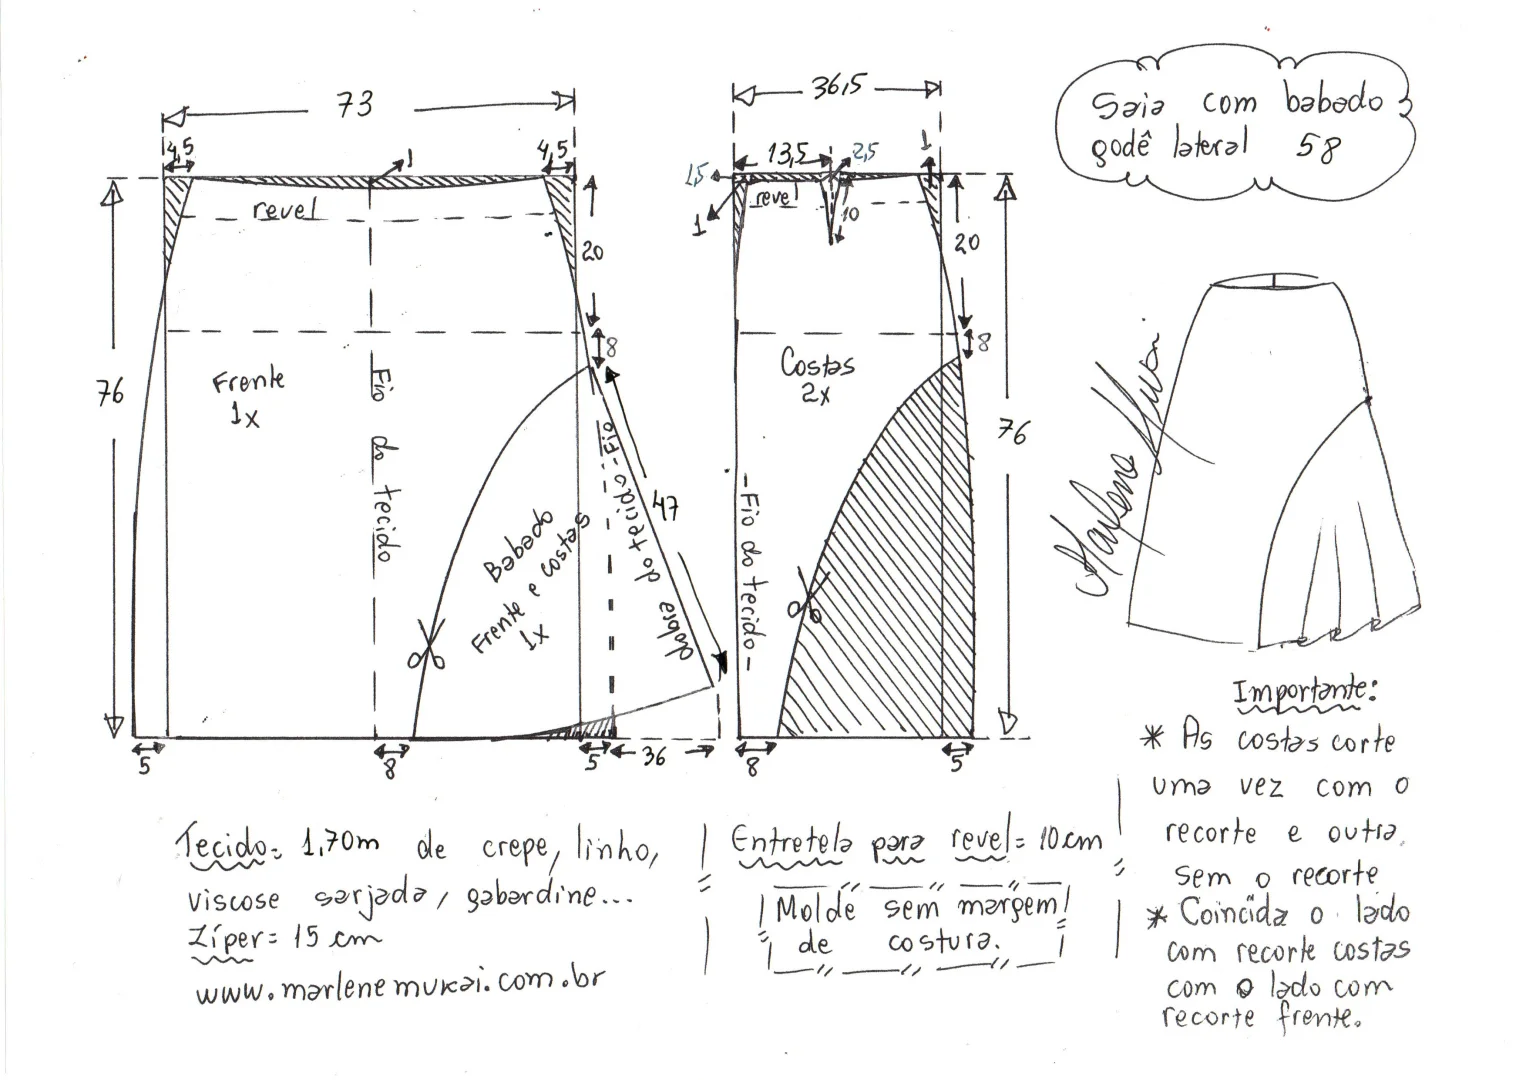 Saia com babado
godê lateral 58
73
4,5
1
4,5
revel
20
8
76
Frente
1x
Fio do tecido
Babado
Frente e costas
1x
Fio do tecido
dobra do tecido
47
5
8
5
36
36,5
13,5
2,5
1
1,5
revel
1
10
20
8
Costas
2x
76
Fio do tecido
8
5
Marlene Mukai
Importante:
* As costas corte
uma vez com o
recorte e outra
sem o recorte
* Coincida o lado
com recorte costas
com o lado com
recorte frente.
Tecido= 1,70m de crepe, linho,
viscose sarjada, gabardine...
Zíper= 15 cm
www.marlenemukai.com.br
Entretela para revel= 10cm
Molde sem margem
de costura.